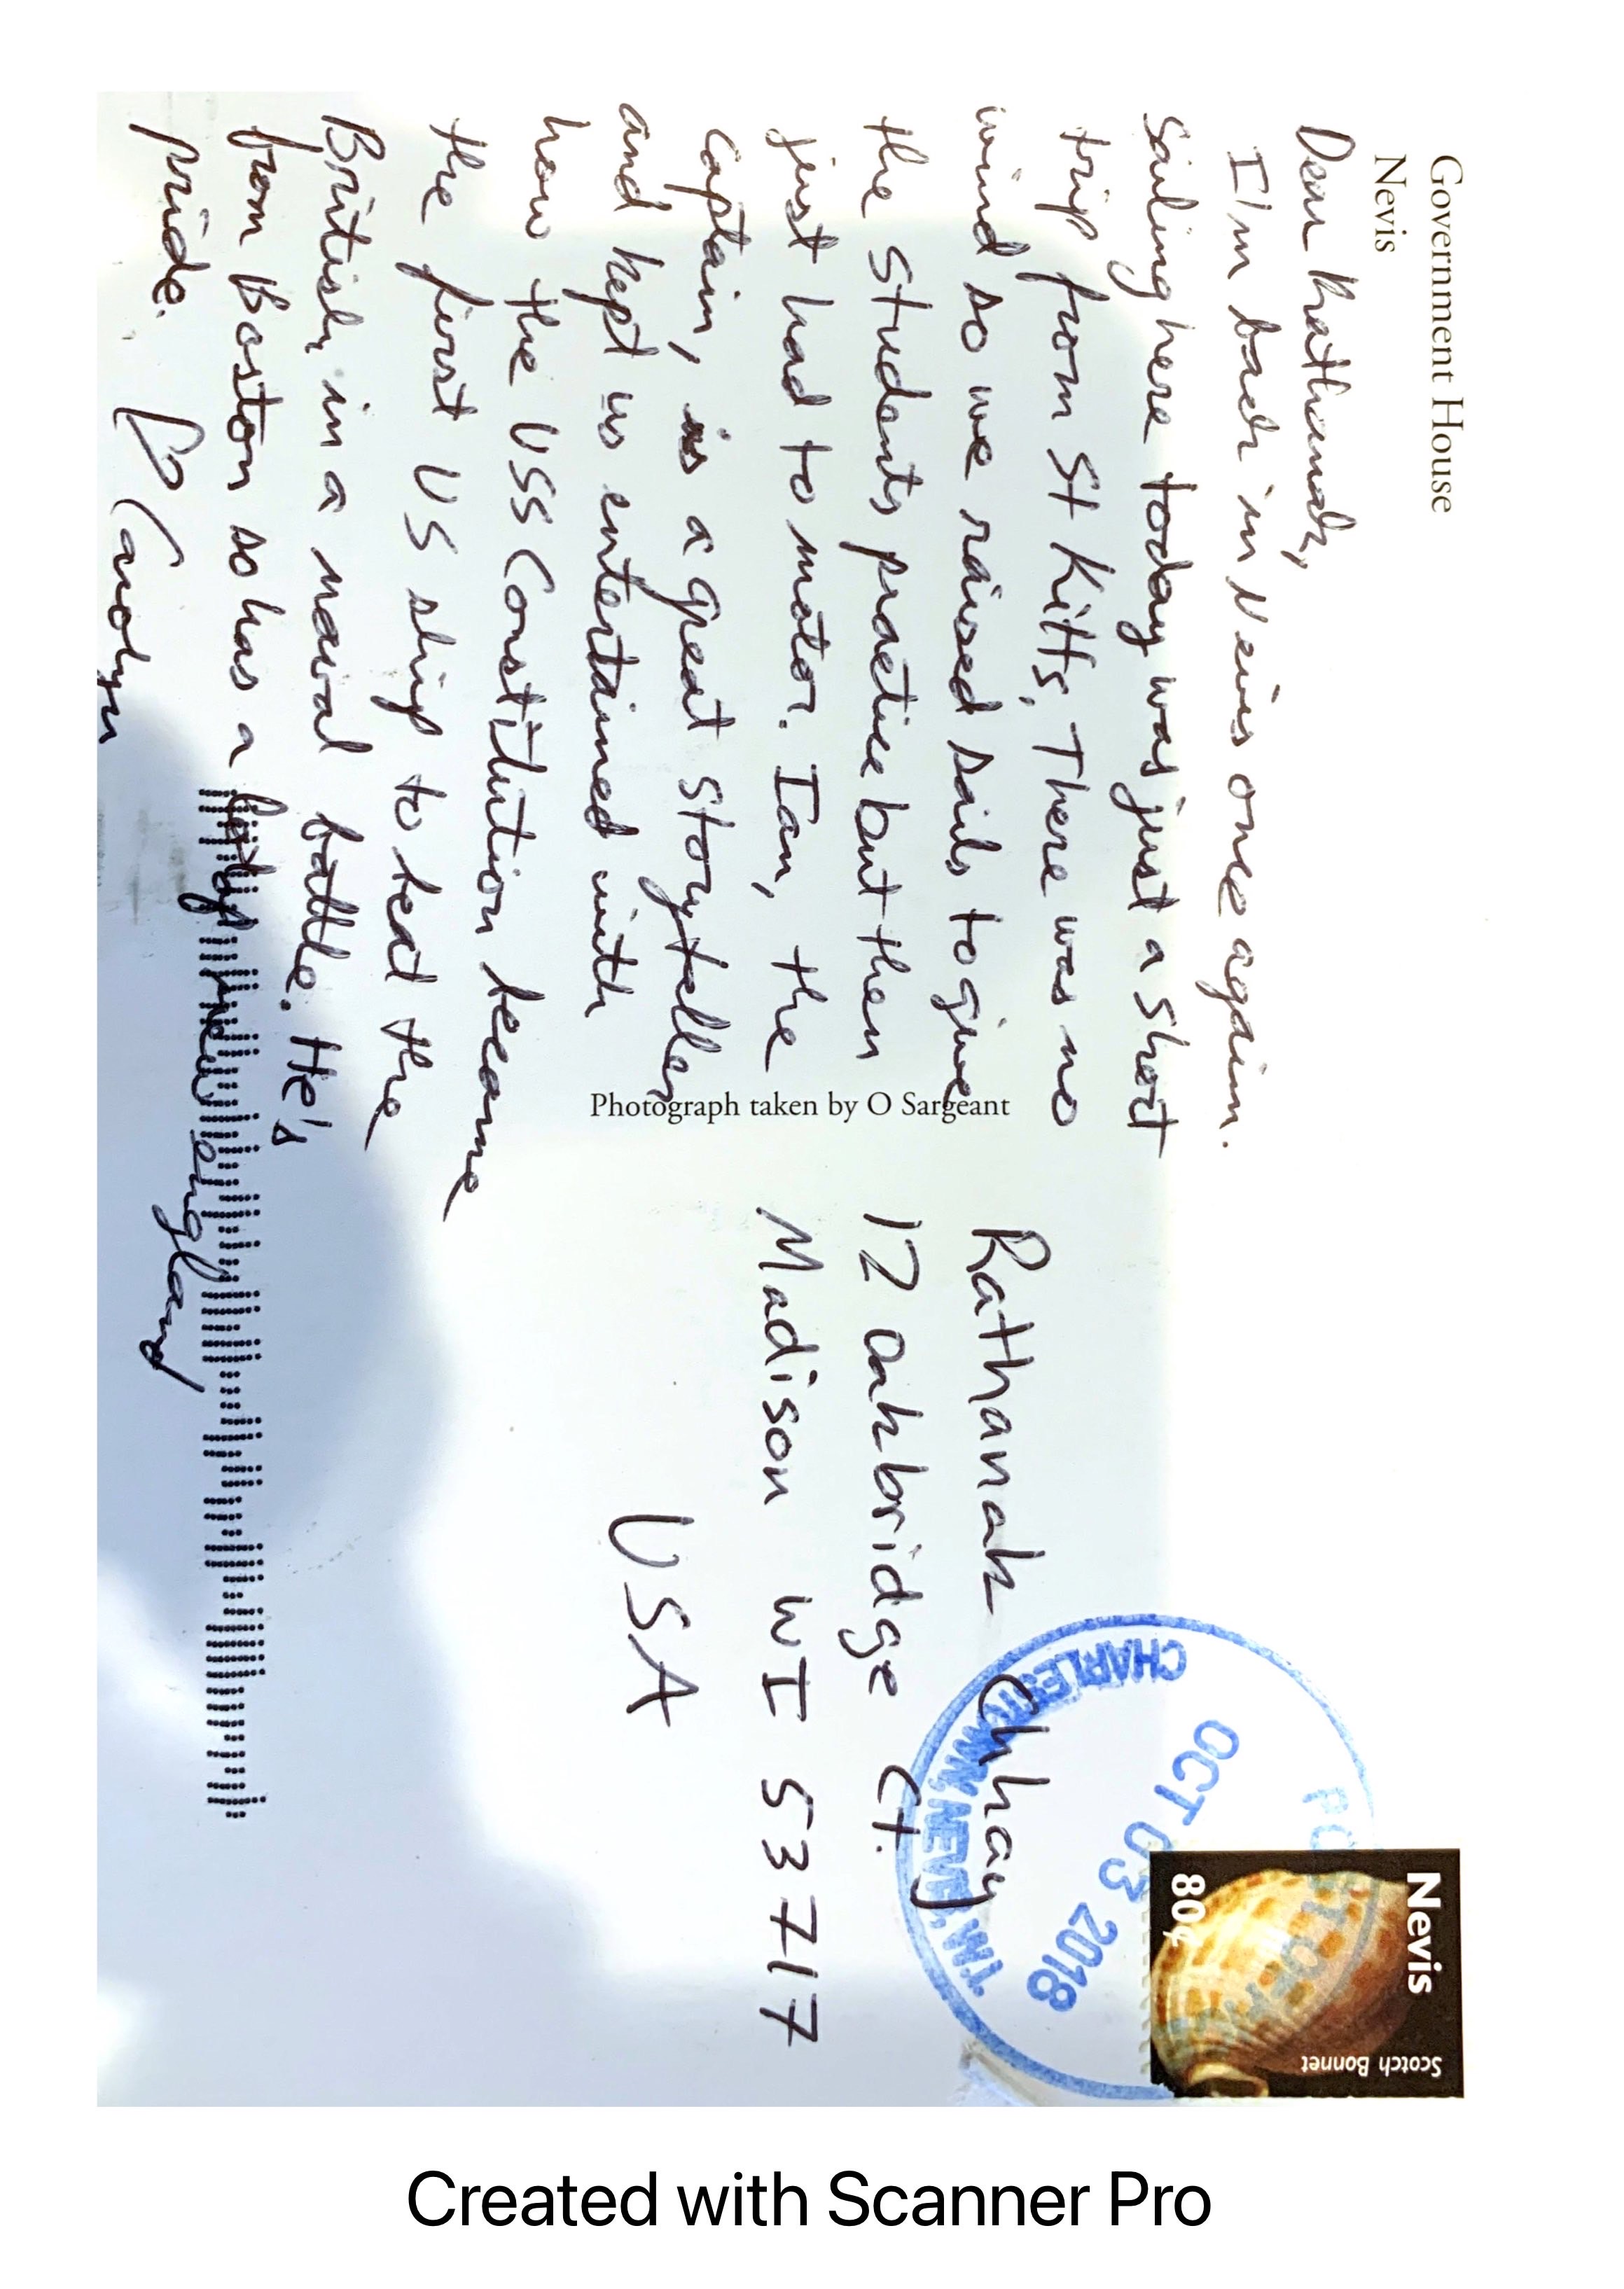 Government House
Nevis
Dear Rathanak,
I'm back in Nevis once again.
Sailing here today was just a short
trip from St Kitts. There was no
wind so we raised sails to give
the students practice but then
just had to motor. Ian, the
captain, is a great storyteller
and kept us entertained with
how the USS Constitution became
the first US ship to beat the
British in a naval battle. He's
from Boston so has a lot of new england
pride.
Carolyn
Photograph taken by O Sargeant
Rathanak Chhay
12 Oakbridge Ct.
Madison WI 53717
USA
Nevis
80¢
Scotch Bonnet
POST OFFICE
OCT 03 2018
CHARLESTOWN, NEVIS, W.I.
Created with Scanner Pro